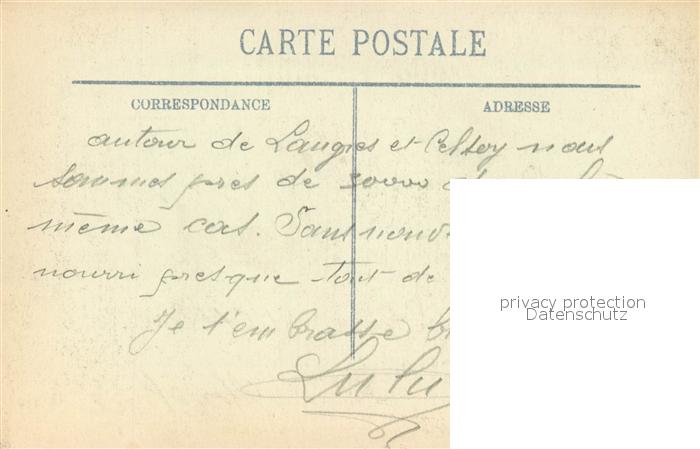 CARTE POSTALE
CORRESPONDANCE
ADRESSE
autour de Langres et Celsoy nous
sommes pres de 30000
même cas. Sans
nourri presque tout de
Je t'embrasse
Lulu
privacy protection
Datenschutz